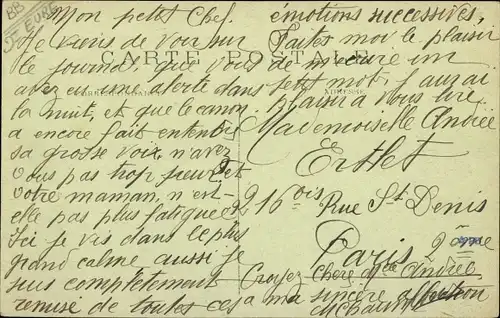 BB
EURE
Mon petit Chef.
Je viens de voir sur
le journal, que vous
avez eu une alerte dans
la nuit, et que le canon
a encore fait entendre
sa grosse voix, n'avez
vous pas trop peur et
votre maman, n'est-
elle pas plus fatiguée
Ici je vis dans le plus
grand calme aussi je
suis complètement
remise de toutes ces
émotions successives,
Faites moi le plaisir
de m'écrire un
petit mot, j'aurai
plaisir à vous lire.
CARTE POSTALE
ADRESSE
Mademoiselle Andrée
Ertlet
216 bis Rue St Denis
Paris 2ème
Croyez chère Mlle Andrée
à ma sincère affection